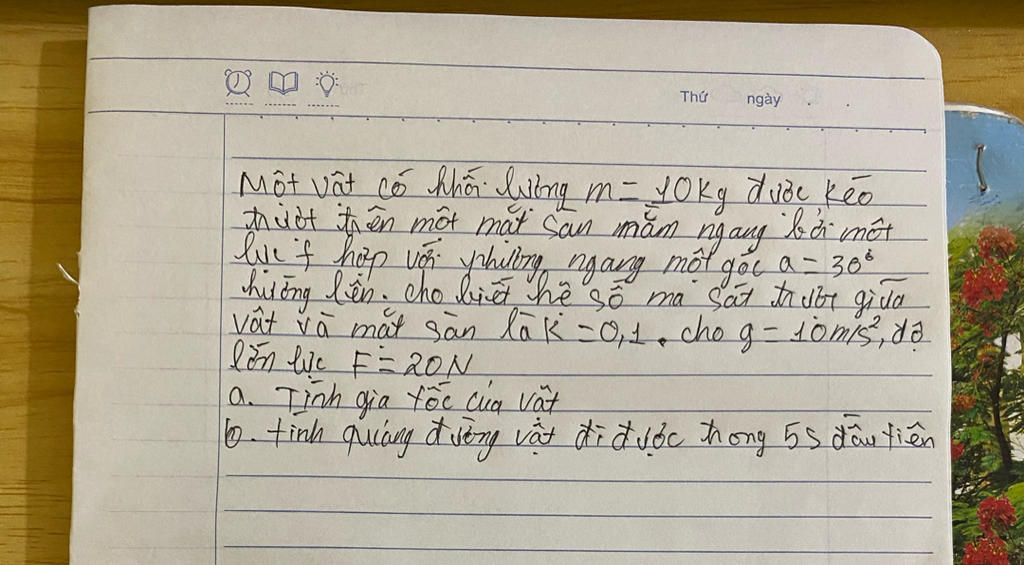 Thứ ngày
Một vật có khối lượng m = 10kg được kéo
trượt trên một mặt sàn nằm ngang bởi một
lực f hợp với phương ngang một góc a = 30°
hướng lên. cho biết hệ số ma sát trượt giữa
vật và mặt sàn là K = 0,1. cho g = 10m/s², độ
lớn lực F = 20N
a. Tính gia tốc của vật
b. tính quãng đường vật đi được trong 5s đầu tiên